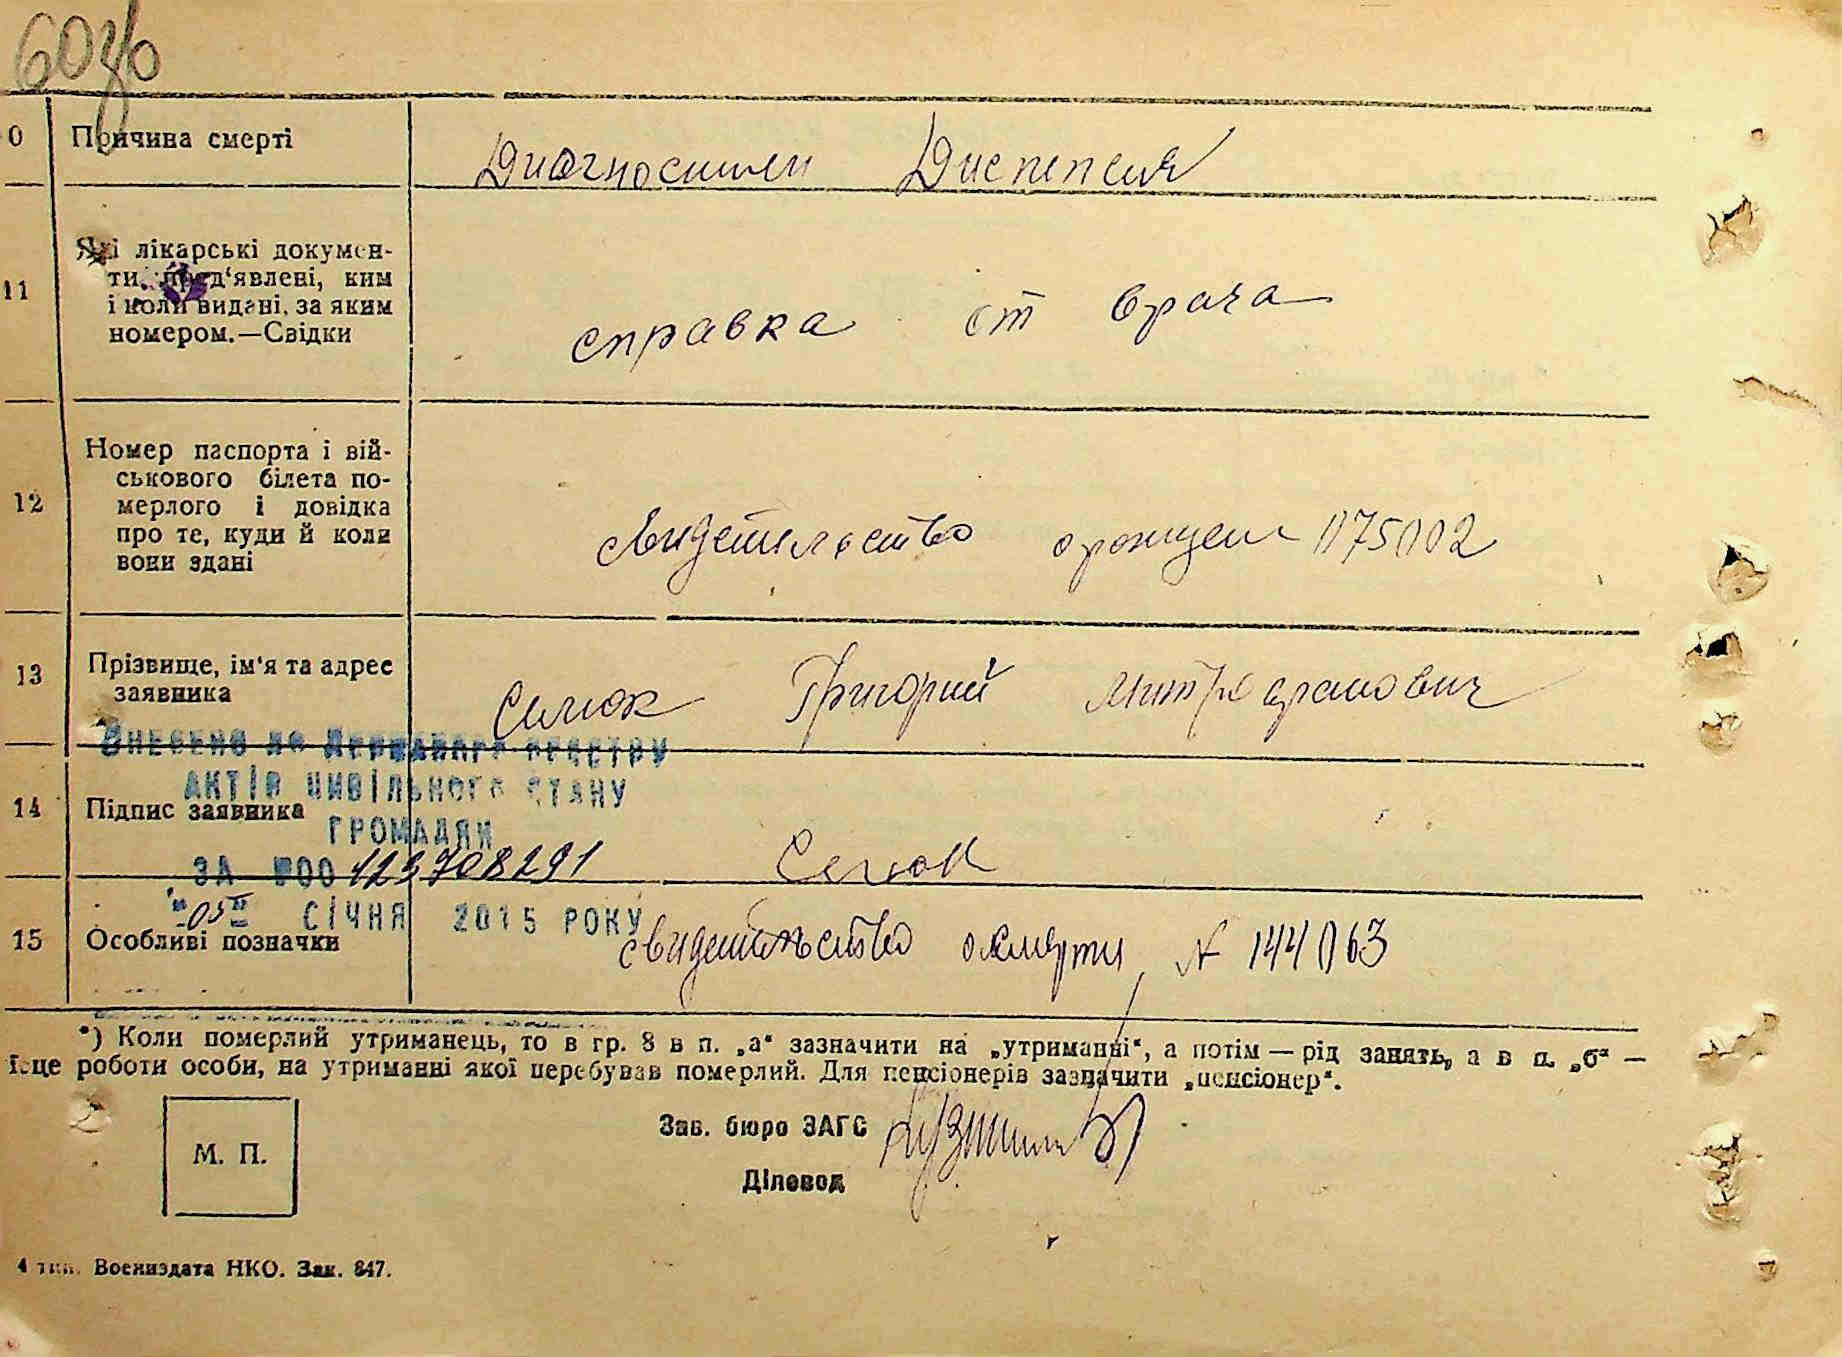 0 Причина смерті Диагносцыли Диспепсия
11 Які лікарські докумен-
ти, пред‘явлені, ким
і коли видані, за яким
номером.—Свідки
справка от врача
12 Номер паспорта і вій-
ськового білета по-
мерлого і довідка
про те, куди й коли
вони здані
свидетельство о рожден 075002
13 Прізвище, ім‘я та адрес
заявника
Григорий Митрофанович
ВНЕСЕНО ДО ДЕРЖАВНОГО РЕЄСТРУ
АКТІВ ЦИВІЛЬНОГО СТАНУ
ГРОМАДЯН
ЗА №00123708291
"05" СІЧНЯ 2015 РОКУ
14 Підпис заявника
15 Особливі позначки свидетельство о смерти N 144063
*) Коли померлий утриманець, то в гр. 8 в п. „а“ зазначити на „утриманні“, а потім — рід занять, а в п. „б“ —
це роботи особи, на утриманні якої перебував померлий. Для пенсіонерів зазначити „пенсіонер“.
М. П.
Зав. бюро ЗАГС
Діловод
4 тип. Воениздата НКО. Зак. 847.